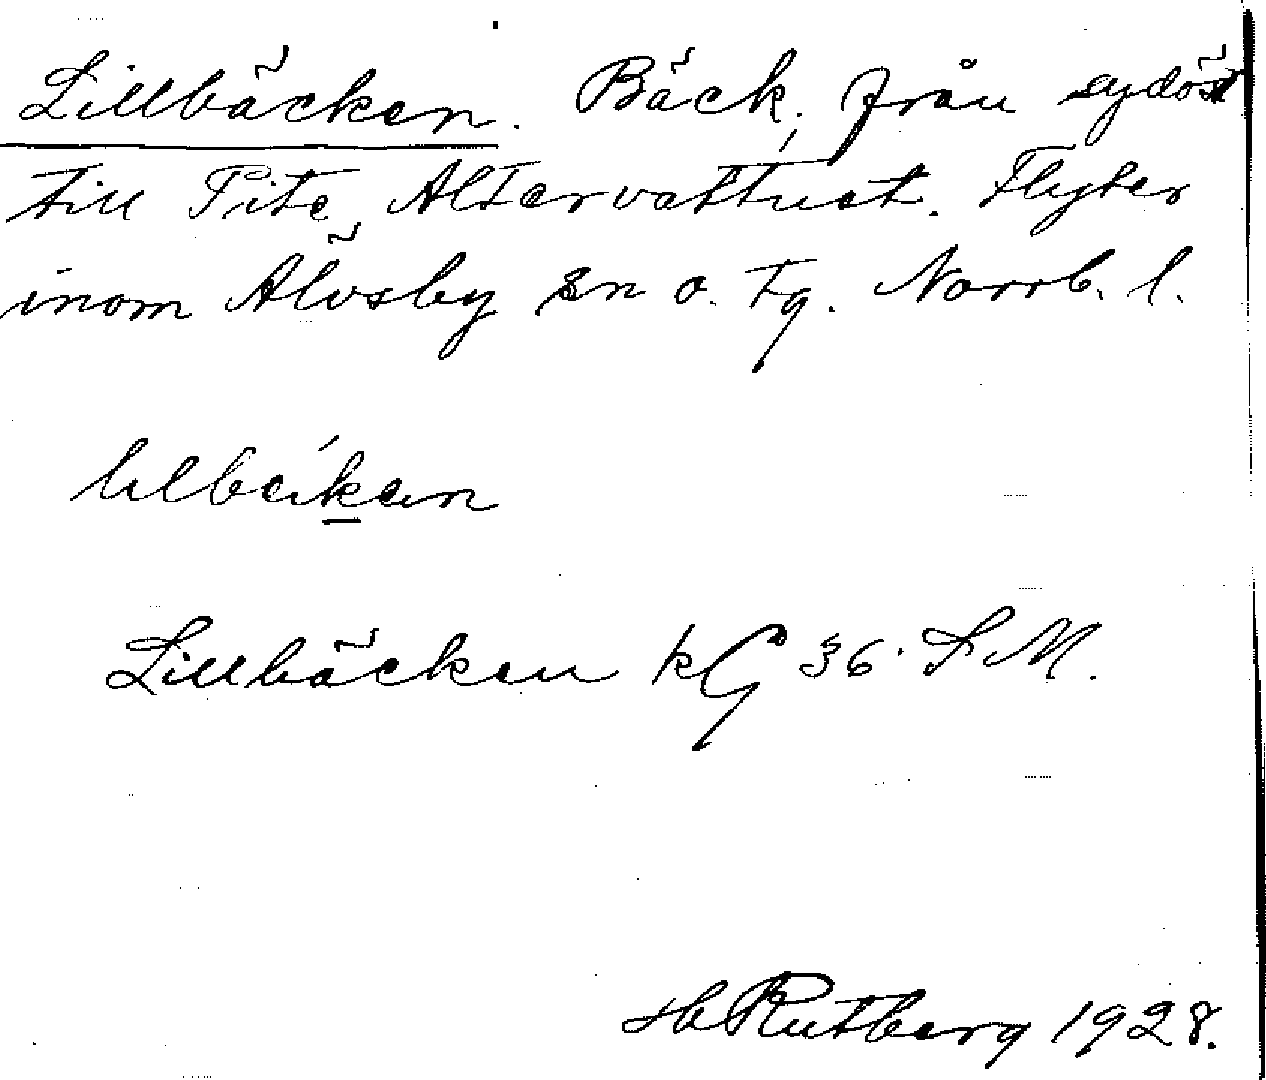 Lillbäcken. Bäck, från sydöst
till Pite Altervattnet. Flyter
inom Älvsby sn o. tg. Norrb. l.
Lillbäcken kG 36. S M.
H Rutberg 1928.